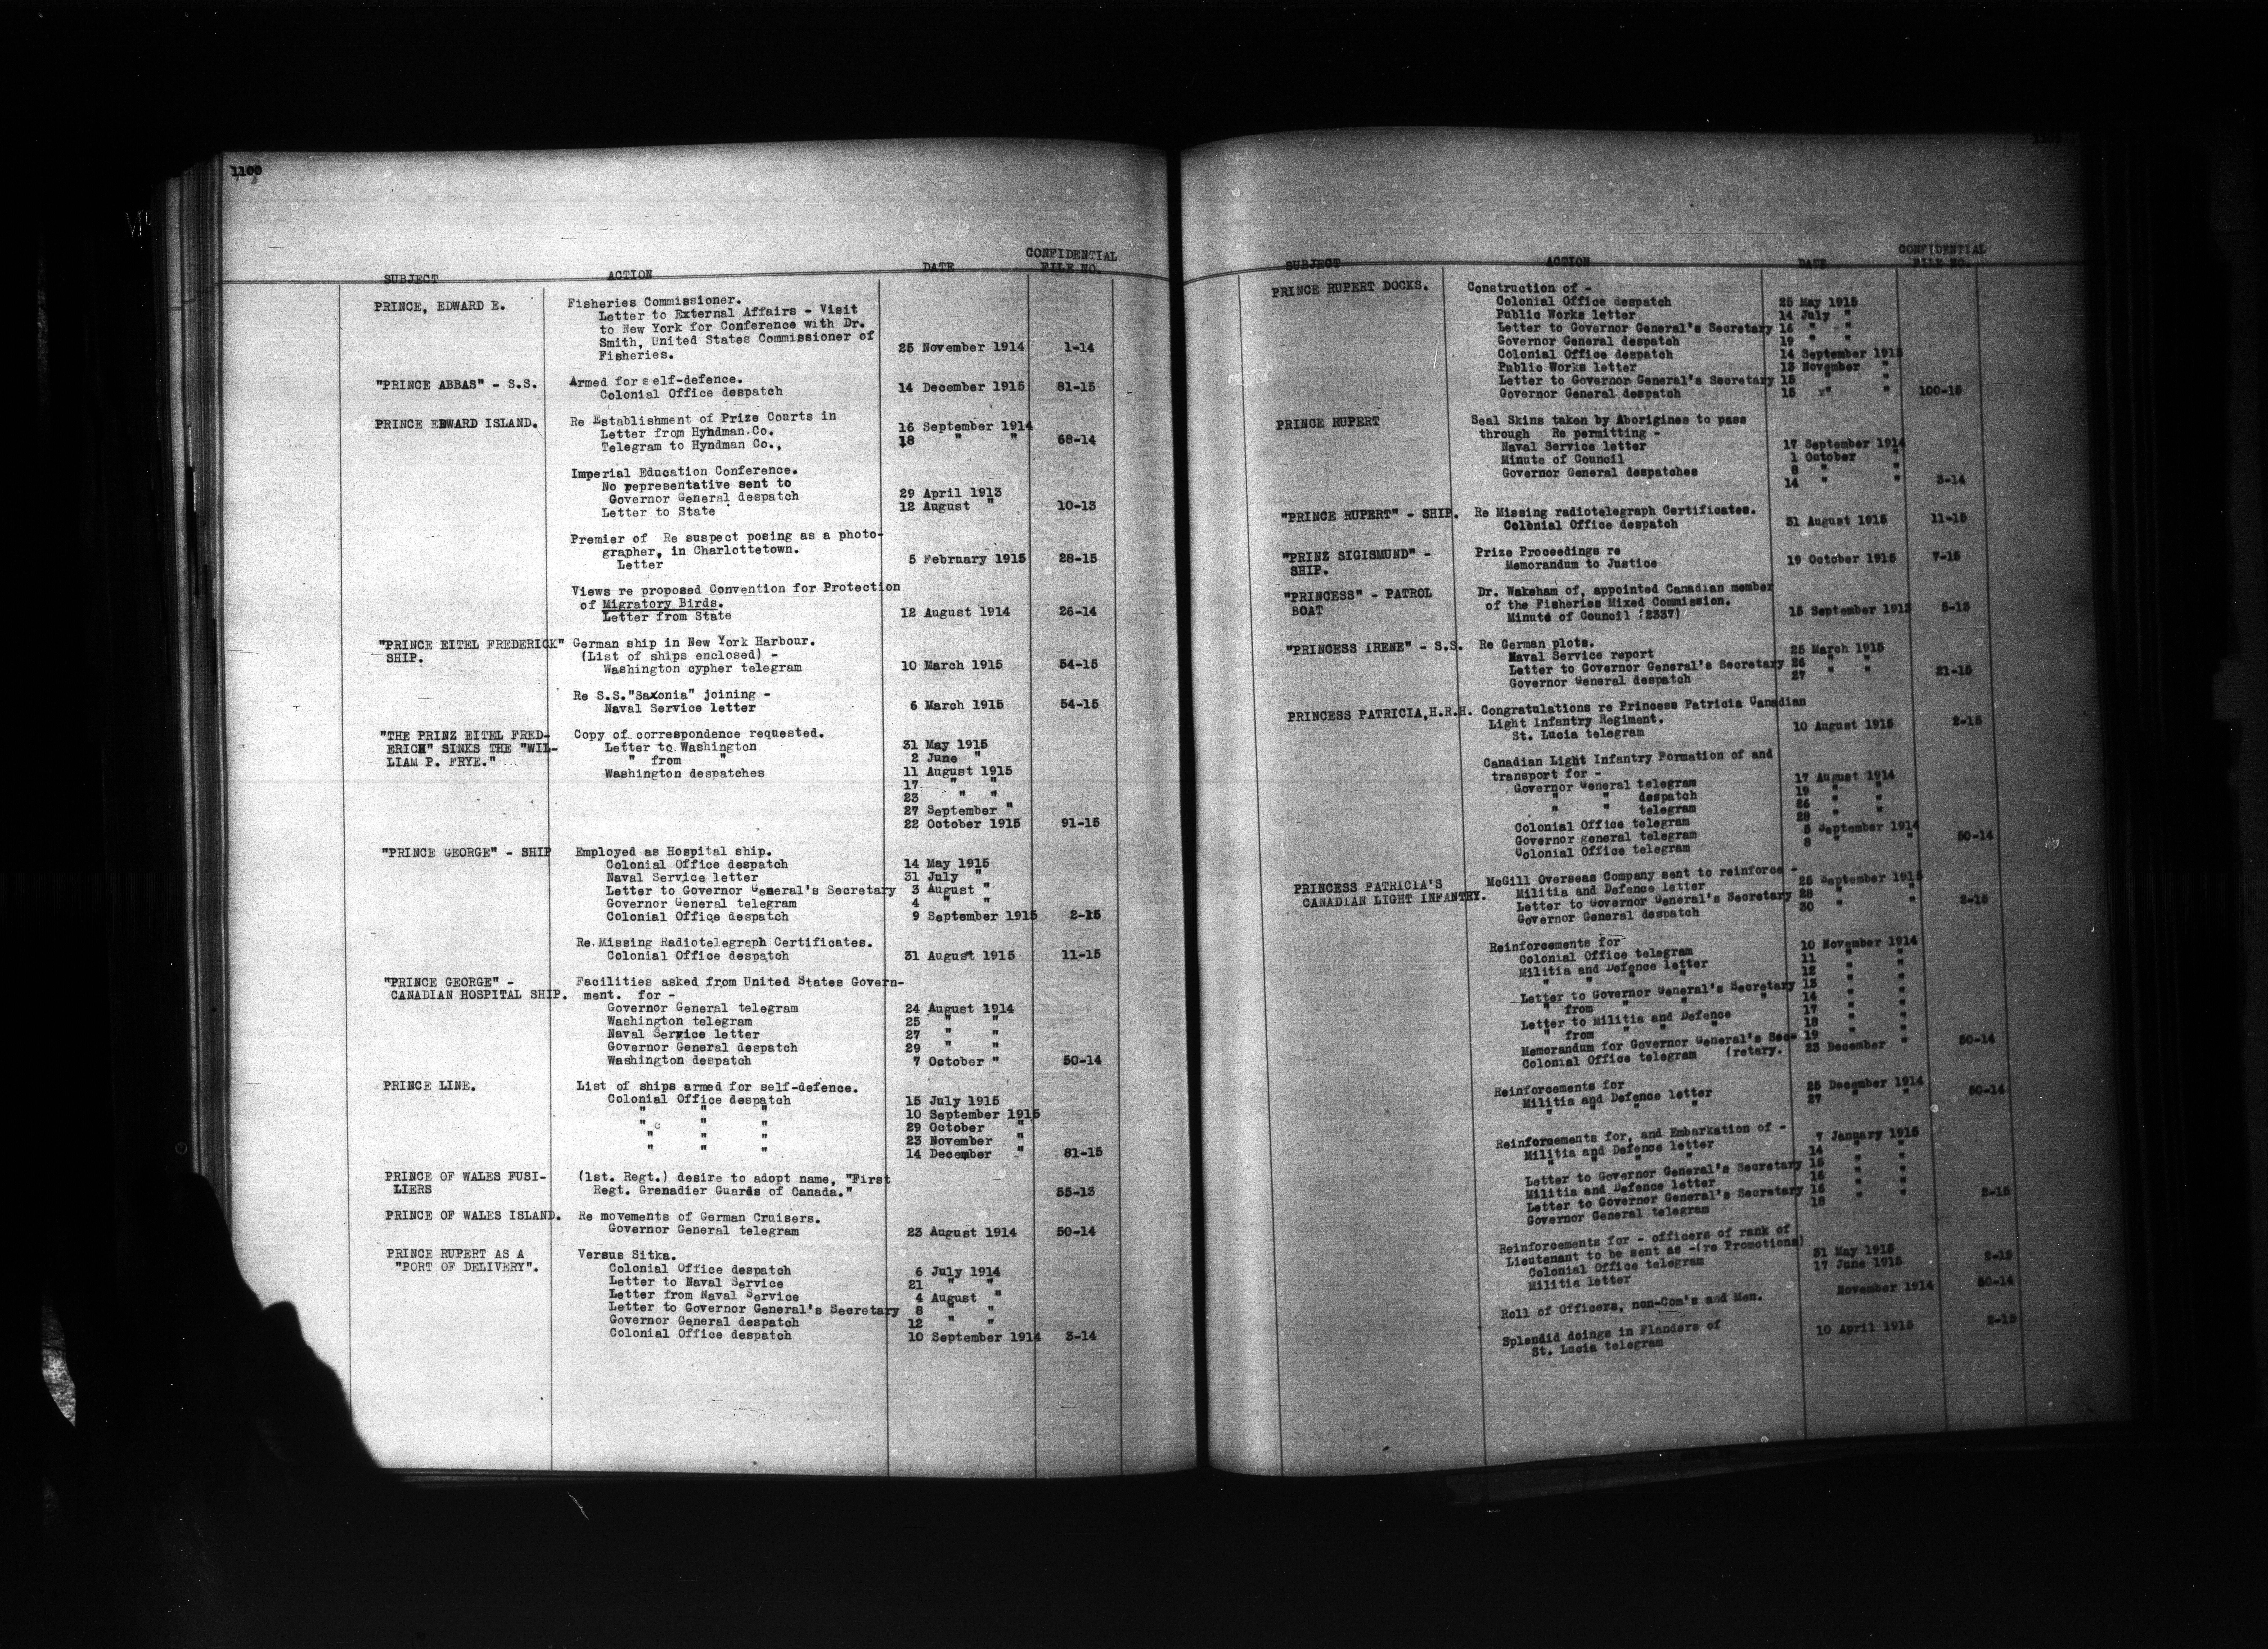 1100
SUBJECT ACTION DATE CONFIDENTIAL FILE NO.
PRINCE, EDWARD E. Fisheries Commissioner.
Letter to External Affairs - Visit
to New York for Conference with Dr.
Smith, United States Commissioner of
Fisheries. 25 November 1914 1-14
"PRINCE ABBAS" - S.S. Armed for self-defence.
Colonial Office despatch 14 December 1915 81-15
PRINCE EDWARD ISLAND. Re Establishment of Prize Courts in
Letter from Hyndman.Co. 16 September 1914
Telegram to Hyndman Co., 18 " " 68-14
Imperial Education Conference.
No representative sent to
Governor General despatch 29 April 1913
Letter to State 12 August " 10-13
Premier of Re suspect posing as a photo-
grapher, in Charlottetown.
Letter 5 February 1915 28-15
Views re proposed Convention for Protection
of Migratory Birds.
Letter from State 12 August 1914 26-14
"PRINCE EITEL FREDERICK" German ship in New York Harbour.
SHIP. (List of ships enclosed) -
Washington cypher telegram 10 March 1915 54-15
Re S.S."Saxonia" joining -
Naval Service letter 6 March 1915 54-15
"THE PRINZ EITEL FRED- Copy of correspondence requested.
ERICH" SINKS THE "WIL- Letter to Washington 31 May 1915
LIAM P. FRYE." " from " 2 June "
Washington despatches 11 August 1915
17 " "
23 " "
27 September "
22 October 1915 91-15
"PRINCE GEORGE" - SHIP Employed as Hospital ship.
Colonial Office despatch 14 May 1915
Naval Service letter 31 July "
Letter to Governor General's Secretary 3 August "
Governor General telegram 4 " "
Colonial Office despatch 9 September 1915 2-15
Re Missing Radiotelegraph Certificates.
Colonial Office despatch 31 August 1915 11-15
"PRINCE GEORGE" - Facilities asked from United States Govern-
CANADIAN HOSPITAL SHIP. ment. for -
Governor General telegram 24 August 1914
Washington telegram 25 " "
Naval Service letter 27 " "
Governor General despatch 29 " "
Washington despatch 7 October " 50-14
PRINCE LINE. List of ships armed for self-defence.
Colonial Office despatch 15 July 1915
" " " 10 September 1915
" " " 29 October "
" " " 23 November "
" " " 14 December " 81-15
PRINCE OF WALES FUSI- (1st. Regt.) desire to adopt name, "First
LIERS Regt. Grenadier Guards of Canada." 55-13
PRINCE OF WALES ISLAND. Re movements of German Cruisers.
Governor General telegram 23 August 1914 50-14
PRINCE RUPERT AS A Versus Sitka.
"PORT OF DELIVERY". Colonial Office despatch 6 July 1914
Letter to Naval Service 21 " "
Letter from Naval Service 4 August "
Letter to Governor General's Secretary 8 " "
Governor General despatch 12 " "
Colonial Office despatch 10 September 1914 3-14
SUBJECT ACTION DATE CONFIDENTIAL FILE NO.
PRINCE RUPERT DOCKS. Construction of -
Colonial Office despatch 25 May 1915
Public Works letter 14 July "
Letter to Governor General's Secretary 16 " "
Governor General despatch 19 " "
Colonial Office despatch 14 September 1915
Public Works letter 13 November "
Letter to Governor General's Secretary 15 " "
Governor General despatch 15 " " 100-15
PRINCE RUPERT Seal Skins taken by Aborigines to pass
through Re permitting -
Naval Service letter 17 September 1914
Minute of Council 1 October "
Governor General despatches 8 " "
14 " " 3-14
"PRINCE RUPERT" - SHIP. Re Missing radiotelegraph Certificates.
Colonial Office despatch 31 August 1915 11-15
"PRINZ SIGISMUND" - Prize Proceedings re
SHIP. Memorandum to Justice 19 October 1915 7-15
"PRINCESS" - PATROL Dr. Wakeham of, appointed Canadian member
BOAT of the Fisheries Mixed Commission.
Minute of Council (2337) 15 September 1912 5-13
"PRINCESS IRENE" - S.S. Re German plots.
Naval Service report 25 March 1915
Letter to Governor General's Secretary 26 " "
Governor General despatch 27 " " 21-15
PRINCESS PATRICIA,H.R.H. Congratulations re Princess Patricia Canadian
Light Infantry Regiment.
St. Lucia telegram 10 August 1915 2-15
Canadian Light Infantry Formation of and
transport for -
Governor General telegram 17 August 1914
" " despatch 19 " "
" " telegram 26 " "
Colonial Office telegram 28 " "
Governor general telegram 5 September 1914
Colonial Office telegram 8 " " 50-14
PRINCESS PATRICIA'S McGill Overseas Company sent to reinforce -
CANADIAN LIGHT INFANTRY. Militia and Defence letter 25 September 1915
Letter to Governor General's Secretary 28 " "
Governor General despatch 30 " " 2-15
Reinforcements for
Colonial Office telegram 10 November 1914
Militia and Defence letter 11 " "
" " " " 12 " "
Letter to Governor General's Secretary 13 " "
" from " " " 14 " "
Letter to Militia and Defence 17 " "
" from " " " 18 " "
Memorandum for Governor General's Sec- 19 " "
Colonial Office telegram (retary. 23 December " 50-14
Reinforcements for
Militia and Defence letter 25 December 1914
" " " " 27 " " 50-14
Reinforcements for, and Embarkation of -
Militia and Defence letter 7 January 1915
" " " " 14 " "
Letter to Governor General's Secretary 15 " "
Militia and Defence letter 16 " "
Letter to Governor General's Secretary 16 " "
Governor General telegram 18 " " 2-15
Reinforcements for - officers of rank of
Lieutenant to be sent as -(re Promotions)
Colonial Office telegram 31 May 1915
Militia letter 17 June 1915 2-15
Roll of Officers, non-Com's and Men. November 1914 50-14
Splendid doings in Flanders of
St. Lucia telegram 10 April 1915 2-15